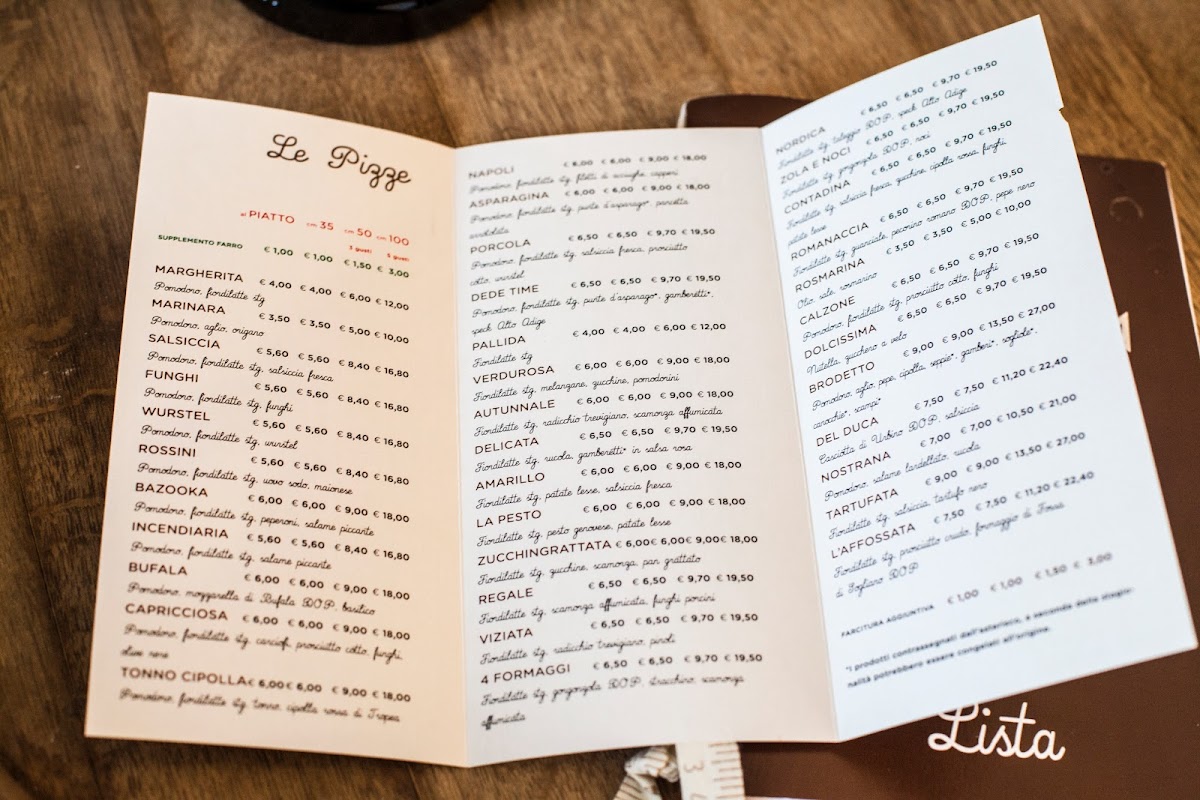 Le Pizze
al PIATTO cm 35 cm 50 cm 100
3 gusti 5 gusti
SUPPLEMENTO FARRO € 1,00 € 1,00 € 1,50 € 3,00
MARGHERITA € 4,00 € 4,00 € 6,00 € 12,00
Pomodoro, fiordilatte stg
MARINARA € 3,50 € 3,50 € 5,00 € 10,00
Pomodoro, aglio, origano
SALSICCIA € 5,60 € 5,60 € 8,40 € 16,80
Pomodoro, fiordilatte stg, salsiccia fresca
FUNGHI € 5,60 € 5,60 € 8,40 € 16,80
Pomodoro, fiordilatte stg, funghi
WURSTEL € 5,60 € 5,60 € 8,40 € 16,80
Pomodoro, fiordilatte stg, wurstel
ROSSINI € 5,60 € 5,60 € 8,40 € 16,80
Pomodoro, fiordilatte stg, uovo sodo, maionese
BAZOOKA € 6,00 € 6,00 € 9,00 € 18,00
Pomodoro, fiordilatte stg, peperoni, salame piccante
INCENDIARIA € 5,60 € 5,60 € 8,40 € 16,80
Pomodoro, fiordilatte stg, salame piccante
BUFALA € 6,00 € 6,00 € 9,00 € 18,00
Pomodoro, mozzarella di Bufala D.O.P., basilico
CAPRICCIOSA € 6,00 € 6,00 € 9,00 € 18,00
Pomodoro, fiordilatte stg, carciofi, prosciutto cotto, funghi,
olive nere
TONNO CIPOLLA € 6,00 € 6,00 € 9,00 € 18,00
Pomodoro, fiordilatte stg, tonno, cipolla rossa di Tropea
NAPOLI € 6,00 € 6,00 € 9,00 € 18,00
Pomodoro, fiordilatte stg, filetti di acciughe, capperi
ASPARAGINA € 6,00 € 6,00 € 9,00 € 18,00
Pomodoro, fiordilatte stg, punte d'asparago*, pancetta
arrotolata
PORCOLA € 6,50 € 6,50 € 9,70 € 19,50
Pomodoro, fiordilatte stg, salsiccia fresca, prosciutto
cotto, wurstel
DEDE TIME € 6,50 € 6,50 € 9,70 € 19,50
Pomodoro, fiordilatte stg, punte d'asparago*, gamberetti*,
speck Alto Adige
PALLIDA € 4,00 € 4,00 € 6,00 € 12,00
Fiordilatte stg
VERDUROSA € 6,00 € 6,00 € 9,00 € 18,00
Fiordilatte stg, melanzane, zucchine, pomodorini
AUTUNNALE € 6,00 € 6,00 € 9,00 € 18,00
Fiordilatte stg, radicchio trevigiano, scamorza affumicata
DELICATA € 6,50 € 6,50 € 9,70 € 19,50
Fiordilatte stg, rucola, gamberetti* in salsa rosa
AMARILLO € 6,00 € 6,00 € 9,00 € 18,00
Fiordilatte stg, patate lesse, salsiccia fresca
LA PESTO € 6,00 € 6,00 € 9,00 € 18,00
Fiordilatte stg, pesto genovese, patate lesse
ZUCCHINGRATTATA € 6,00 € 6,00 € 9,00 € 18,00
Fiordilatte stg, zucchine, scamorza, pan grattato
REGALE € 6,50 € 6,50 € 9,70 € 19,50
Fiordilatte stg, scamorza affumicata, funghi porcini
VIZIATA € 6,50 € 6,50 € 9,70 € 19,50
Fiordilatte stg, radicchio trevigiano, pinoli
4 FORMAGGI € 6,50 € 6,50 € 9,70 € 19,50
Fiordilatte stg, gorgonzola D.O.P., stracchino, scamorza
affumicata
NORDICA € 6,50 € 6,50 € 9,70 € 19,50
Fiordilatte stg, taleggio D.O.P., speck Alto Adige
ZOLA E NOCI € 6,50 € 6,50 € 9,70 € 19,50
Fiordilatte stg, gorgonzola D.O.P., noci
CONTADINA € 6,50 € 6,50 € 9,70 € 19,50
Fiordilatte stg, salsiccia fresca, zucchine, cipolla rossa, funghi,
patate lesse
ROMANACCIA € 6,50 € 6,50 € 9,70 € 19,50
Fiordilatte stg, guanciale, pecorino romano D.O.P., pepe nero
ROSMARINA € 3,50 € 3,50 € 5,00 € 10,00
Olio, sale, rosmarino
CALZONE € 6,50 € 6,50 € 9,70 € 19,50
Pomodoro, fiordilatte stg, prosciutto cotto, funghi
DOLCISSIMA € 6,50 € 6,50 € 9,70 € 19,50
Nutella, zucchero a velo
BRODETTO € 9,00 € 9,00 € 13,50 € 27,00
Pomodoro, aglio, pepe, cipolla, seppie*, gamberi*, sogliole*,
canocchie*, scampi*
DEL DUCA € 7,50 € 7,50 € 11,20 € 22,40
Casciotta di Urbino D.O.P., salsiccia
NOSTRANA € 7,00 € 7,00 € 10,50 € 21,00
Pomodoro, salame lardellato, rucola
TARTUFATA € 9,00 € 9,00 € 13,50 € 27,00
Fiordilatte stg, salsiccia, tartufo nero
L'AFFOSSATA € 7,50 € 7,50 € 11,20 € 22,40
Fiordilatte stg, prosciutto crudo, formaggio di Fossa
di Sogliano D.O.P.
FARCITURA AGGIUNTIVA € 1,00 € 1,00 € 1,50 € 3,00
*I prodotti contrassegnati dall'asterisco, a seconda della stagio-
nalità potrebbero essere congelati all'origine.
Lista